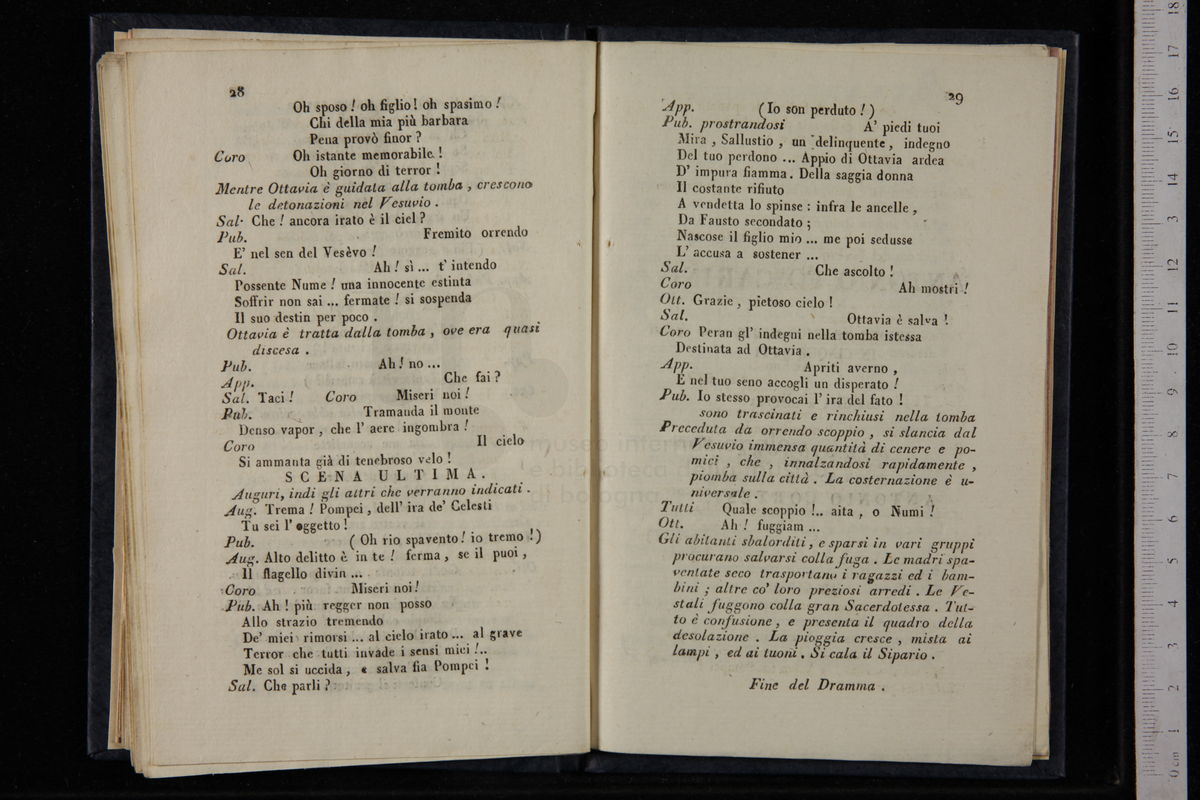 28
Oh sposo ! oh figlio ! oh spasimo !
Chi della mia più barbara
Pena provò finor ?
Coro Oh istante memorabile !
Oh giorno di terror !
Mentre Ottavia è guidata alla tomba , crescono
le detonazioni nel Vesuvio .
Sal· Che ! ancora irato è il ciel ?
Pub. Fremito orrendo
E' nel sen del Vesèvo !
Sal. Ah ! sì ... t' intendo
Possente Nume ! una innocente estinta
Soffrir non sai ... fermate ! si sospenda
Il suo destin per poco .
Ottavia è tratta dalla tomba , ove era quasi
discesa .
Pub. Ah ! no ...
App. Che fai ?
Sal. Taci ! Coro Miseri noi !
Pub. Tramanda il monte
Denso vapor , che l' aere ingombra !
Coro Il cielo
Si ammanta già di tenebroso velo !
SCENA ULTIMA.
Auguri, indi gli altri che verranno indicati .
Aug. Trema ! Pompei , dell' ira de' Celesti
Tu sei l' oggetto !
Pub. ( Oh rio spavento ! io tremo !)
Aug. Alto delitto è in te ! ferma , se il puoi ,
Il flagello divin ...
Coro Miseri noi !
Pub. Ah ! più regger non posso
Allo strazio tremendo
De' miei rimorsi ... al cielo irato ... al grave
Terror che tutti invade i sensi miei !..
Me sol si uccida , e salva fia Pompei !
Sal. Che parli ?
29
App. (Io son perduto ! )
Pub. prostrandosi A' piedi tuoi
Mira , Sallustio , un delinquente , indegno
Del tuo perdono ... Appio di Ottavia ardea
D' impura fiamma. Della saggia donna
Il costante rifiuto
A vendetta lo spinse : infra le ancelle ,
Da Fausto secondato ;
Nascose il figlio mio ... me poi sedusse
L' accusa a sostener ...
Sal. Che ascolto !
Coro Ah mostri !
Ott. Grazie , pietoso cielo !
Sal. Ottavia è salva !
Coro Peran gl' indegni nella tomba istessa
Destinata ad Ottavia .
App. Apriti averno ,
E nel tuo seno accogli un disperato !
Pub. Io stesso provocai l' ira del fato !
sono trascinati e rinchiusi nella tomba
Preceduta da orrendo scoppio , si slancia dal
Vesuvio immensa quantità di cenere e po-
mici , che , innalzandosi rapidamente ,
piomba sulla città . La costernazione è u-
niversale .
Tutti Quale scoppio !.. aita , o Numi !
Ott. Ah ! fuggiam ...
Gli abitanti sbalorditi , e sparsi in vari gruppi
procurano salvarsi colla fuga . Le madri spa-
ventate seco trasportano i ragazzi ed i bam-
bini ; altre co' loro preziosi arredi . Le Ve-
stali fuggono colla gran Sacerdotessa . Tut-
to è confusione , e presenta il quadro della
desolazione . La pioggia cresce , mista ai
lampi , ed ai tuoni . Si cala il Sipario .
Fine del Dramma .
museo
e biblioteca
di bologna
0 cm 1 2 3 4 5 6 7 8 9 10 11 12 13 14 15 16 17 18